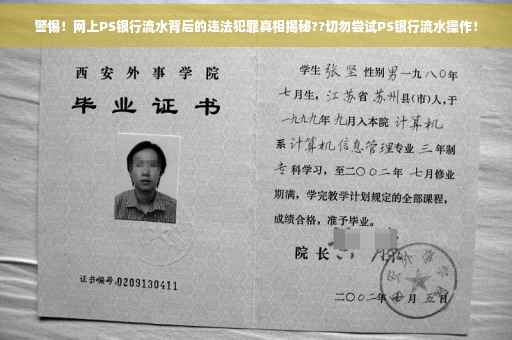 警惕！网上PS银行流水背后的违法犯罪真相揭秘??切勿尝试PS银行流水操作！
西安外事学院
毕业证书
证书编号:0209130411
学生 张坚 性别 男 一九八〇年
七月生，江苏省 苏州县(市)人，于
一九九九年 九月入本院 计算机
系 计算机信息管理专业 三 年制
专科学习，至二〇〇二年 七月修业
期满，学完教学计划规定的全部课程，
成绩合格，准予毕业。
院长
二〇〇二年 七 月 五 日